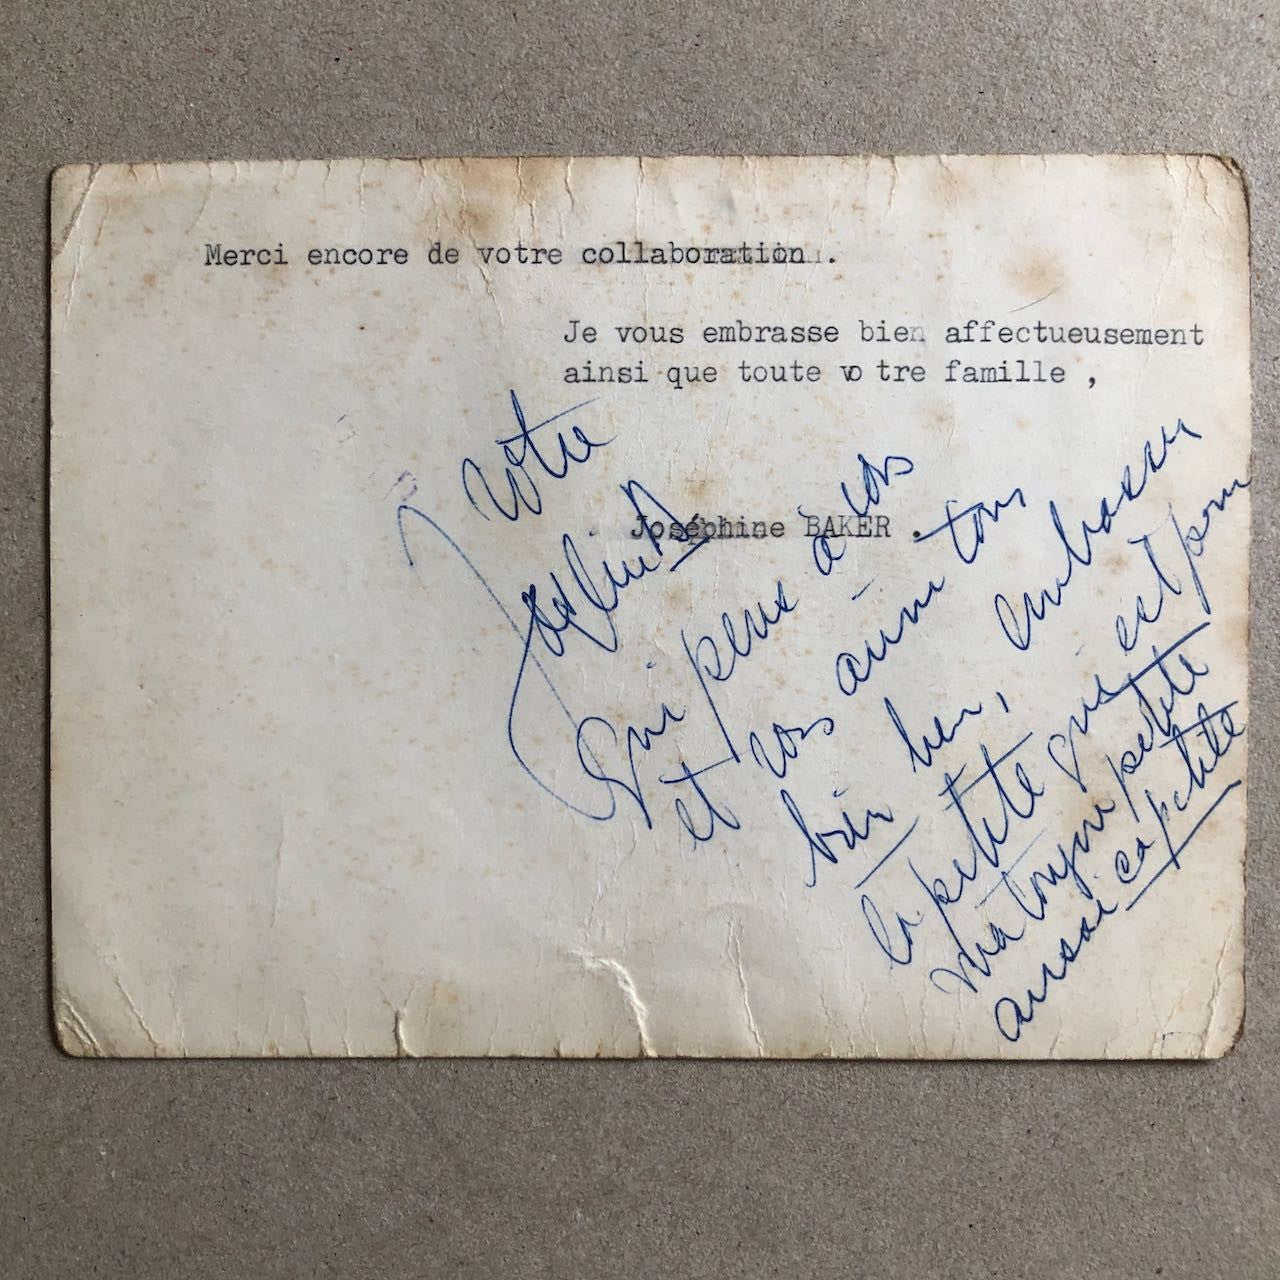 Merci encore de votre collaboration .
Je vous embrasse bien affectueusement
ainsi que toute vo tre famille ,
Joséphine BAKER .
Votre
Joséphine B
qui pense à vos
et vous aime tous
bien bien, embrasser
la petite qui est pour
ma toujours petite
aussi sa petite